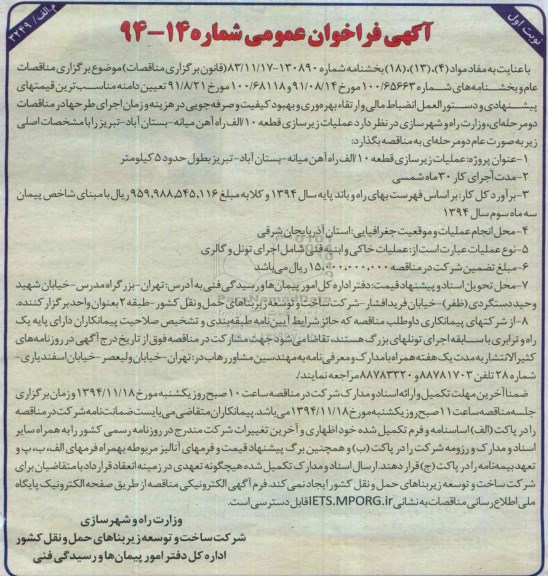 نوبت اول
م.الف/ ۳۲۴۹
آگهی فراخوان عمومی شماره ۱۴-۹۴
با عنایت به مفاد مواد (۴)، (۱۳)، (۱۸) بخشنامه شماره ۱۳۰۸۹۰-۸۳/۱۱/۱۷ (قانون برگزاری مناقصات) موضوع برگزاری مناقصات
عام و بخشنامه های شماره ۱۰۰/۶۵۶۶۳ مورخ ۹۱/۰۸/۱۴ و ۱۰۰/۶۸۱۱۸ مورخ ۹۱/۸/۲۱ تعیین دامنه مناسب ترین قیمتهای
پیشنهادی و دستورالعمل انضباط مالی و ارتقاء بهره وری و بهبود کیفیت و صرفه جویی در هزینه و زمان اجرای طرحها در مناقصات
دو مرحله ای، وزارت راه و شهرسازی در نظر دارد عملیات زیرسازی قطعه ۱۰/الف راه آهن میانه-بستان آباد-تبریز را با مشخصات اصلی
زیر به صورت عام دو مرحله ای به مناقصه بگذارد:
۱-عنوان پروژه: عملیات زیرسازی قطعه ۱۰/الف راه آهن میانه-بستان آباد-تبریز بطول حدود ۵ کیلومتر
۲-مدت اجرای کار ۳۰ ماه شمسی
۳-برآورد کل کار: بر اساس فهرست بهای راه و باند پایه سال ۱۳۹۴ و کلا به مبلغ ۹۵۹,۹۸۸,۵۴۵,۱۱۶ ریال با مبنای شاخص پیمان
سه ماه سوم سال ۱۳۹۴
۴-محل انجام عملیات و موقعیت جغرافیایی: استان آذربایجان شرقی
۵-نوع عملیات عبارت است از: عملیات خاکی و ابنیه فنی شامل اجرای تونل و گالری
۶-مبلغ تضمین شرکت در مناقصه ۱۵,۰۰۰,۰۰۰,۰۰۰ ریال می باشد
۷-محل تحویل اسناد و پیشنهاد قیمت: دفتر اداره کل امور پیمان ها و رسیدگی فنی به آدرس: تهران-بزرگراه مدرس-خیابان شهید
وحید دستگردی (ظفر)-خیابان فرید افشار-شرکت ساخت و توسعه زیربناهای حمل و نقل کشور-طبقه ۲ بعنوان واحد برگزار کننده.
۸-از شرکتهای پیمانکاری داوطلب مناقصه که حائز شرایط آیین نامه طبقه بندی و تشخیص صلاحیت پیمانکاران دارای پایه یک
راه و ترابری با سابقه اجرای تونلهای بزرگ هستند، تقاضا می شود جهت مشارکت در مناقصه فوق از تاریخ درج آگهی در روزنامه های
کثیرالانتشار به مدت یک هفته همراه با مدارک و معرفی نامه به مهندسین مشاور رهاب در: تهران-خیابان ولیعصر-خیابان اسفندیاری-
شماره ۲۸ تلفن ۸۸۷۸۱۷۰۳ و ۸۸۷۸۳۳۲۰ مراجعه نمایند/.
ضمنا آخرین مهلت تکمیل و ارائه اسناد و مدارک شرکت در مناقصه ساعت ۱۰ صبح روز یکشنبه مورخ ۱۳۹۴/۱۱/۱۸ و زمان برگزاری
جلسه مناقصه ساعت ۱۱ صبح روز یکشنبه مورخ ۱۳۹۴/۱۱/۱۸ می باشد. پیمانکاران متقاضی می بایست ضمانت نامه شرکت در مناقصه
را در پاکت (الف) اساسنامه و فرم تکمیل شده خود اظهاری و آخرین تغییرات شرکت مندرج در روزنامه رسمی کشور را به همراه سایر
اسناد و مدارک و رزومه شرکت را در پاکت (ب) و همچنین برگ پیشنهاد قیمت و فرمهای آنالیز مربوطه بهمراه فرمهای الف، ب، پ و
تعهد بیمه نامه را در پاکت (ج) قرار دهند. ارسال اسناد و مدارک تکمیل شده هیچگونه تعهدی در زمینه انعقاد قرارداد با متقاضیان برای
شرکت ساخت و توسعه زیربناهای حمل و نقل کشور ایجاد نمی کند. فرم آگهی الکترونیکی مناقصه از طریق صفحه الکترونیک پایگاه
ملی اطلاع رسانی مناقصات به نشانی IETS.MPORG.ir قابل دسترسی است.
وزارت راه و شهرسازی
شرکت ساخت و توسعه زیربناهای حمل و نقل کشور
اداره کل دفتر امور پیمان ها و رسیدگی فنی